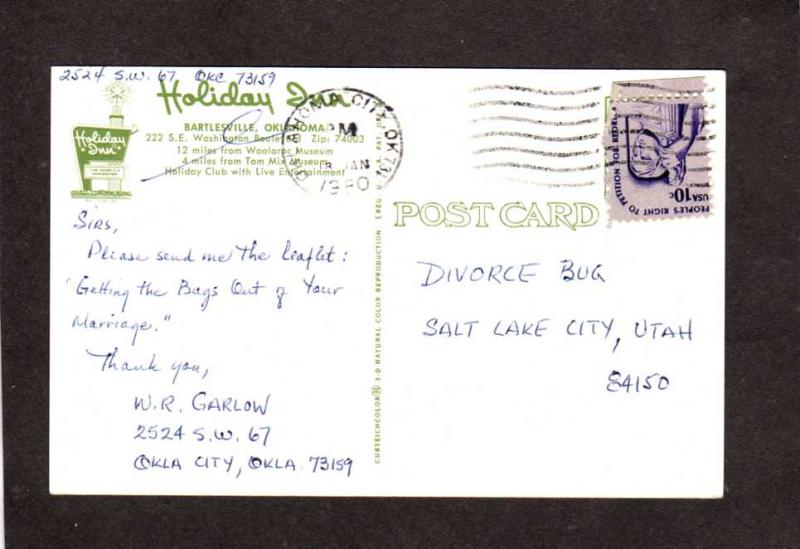 2524 S.W. 67 OKC 73159
Holiday Inn
BARTLESVILLE, OKLAHOMA
222 S.E. Washington Boulevard Zip: 74003
12 miles from Woolaroc Museum
4 miles from Tom Mix Museum
Holiday Club with Live Entertainment
Holiday
Inn
OKLAHOMA CITY, OK 731
PM
JAN
1980
PEOPLE'S RIGHT TO PETITION FOR
USA 10c
POST CARD
CURTEICHCOLOR 3-D NATURAL COLOR REPRODUCTION
Sirs,
Please send me the leaflet:
"Getting the Bugs Out of Your
Marriage."
Thank you,
W.R. GARLOW
2524 S.W. 67
OKLA CITY, OKLA. 73159
DIVORCE BUG
SALT LAKE CITY, UTAH
84150